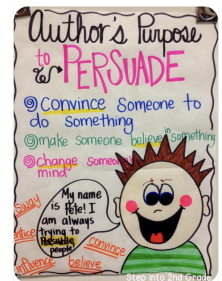 Author's Purpose
to PERSUADE
convince someone to
do something
make someone believe in something
change someone's
mind
My name
is Pete! I
am always
trying to
Persuade
people!
sway
entice
influence
believe
convince
Step into 2nd Grade